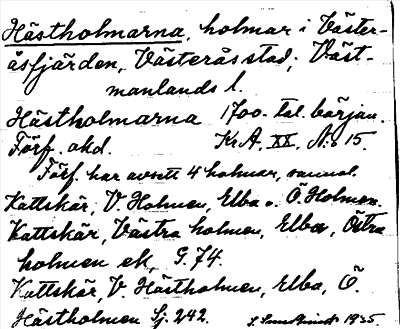 Hästholmarna, holmar i Väster-
åsfjärden, Västerås stad; Väst-
manlands l.
Hästholmarna 1700-tal. början.
Förf. okd. Kr.A. XX, N:o 15.
Förf. har avsett 4 holmar, samml.
Kattskär, V. Holmen, Elba o. Ö Holmen.
Kattskär, Västra holmen, Elba, Östra
holmen ek. G. 74.
Kattskär, V. Hästholmen, Elba, Ö.
Hästholmen Sj. 242. 1935.